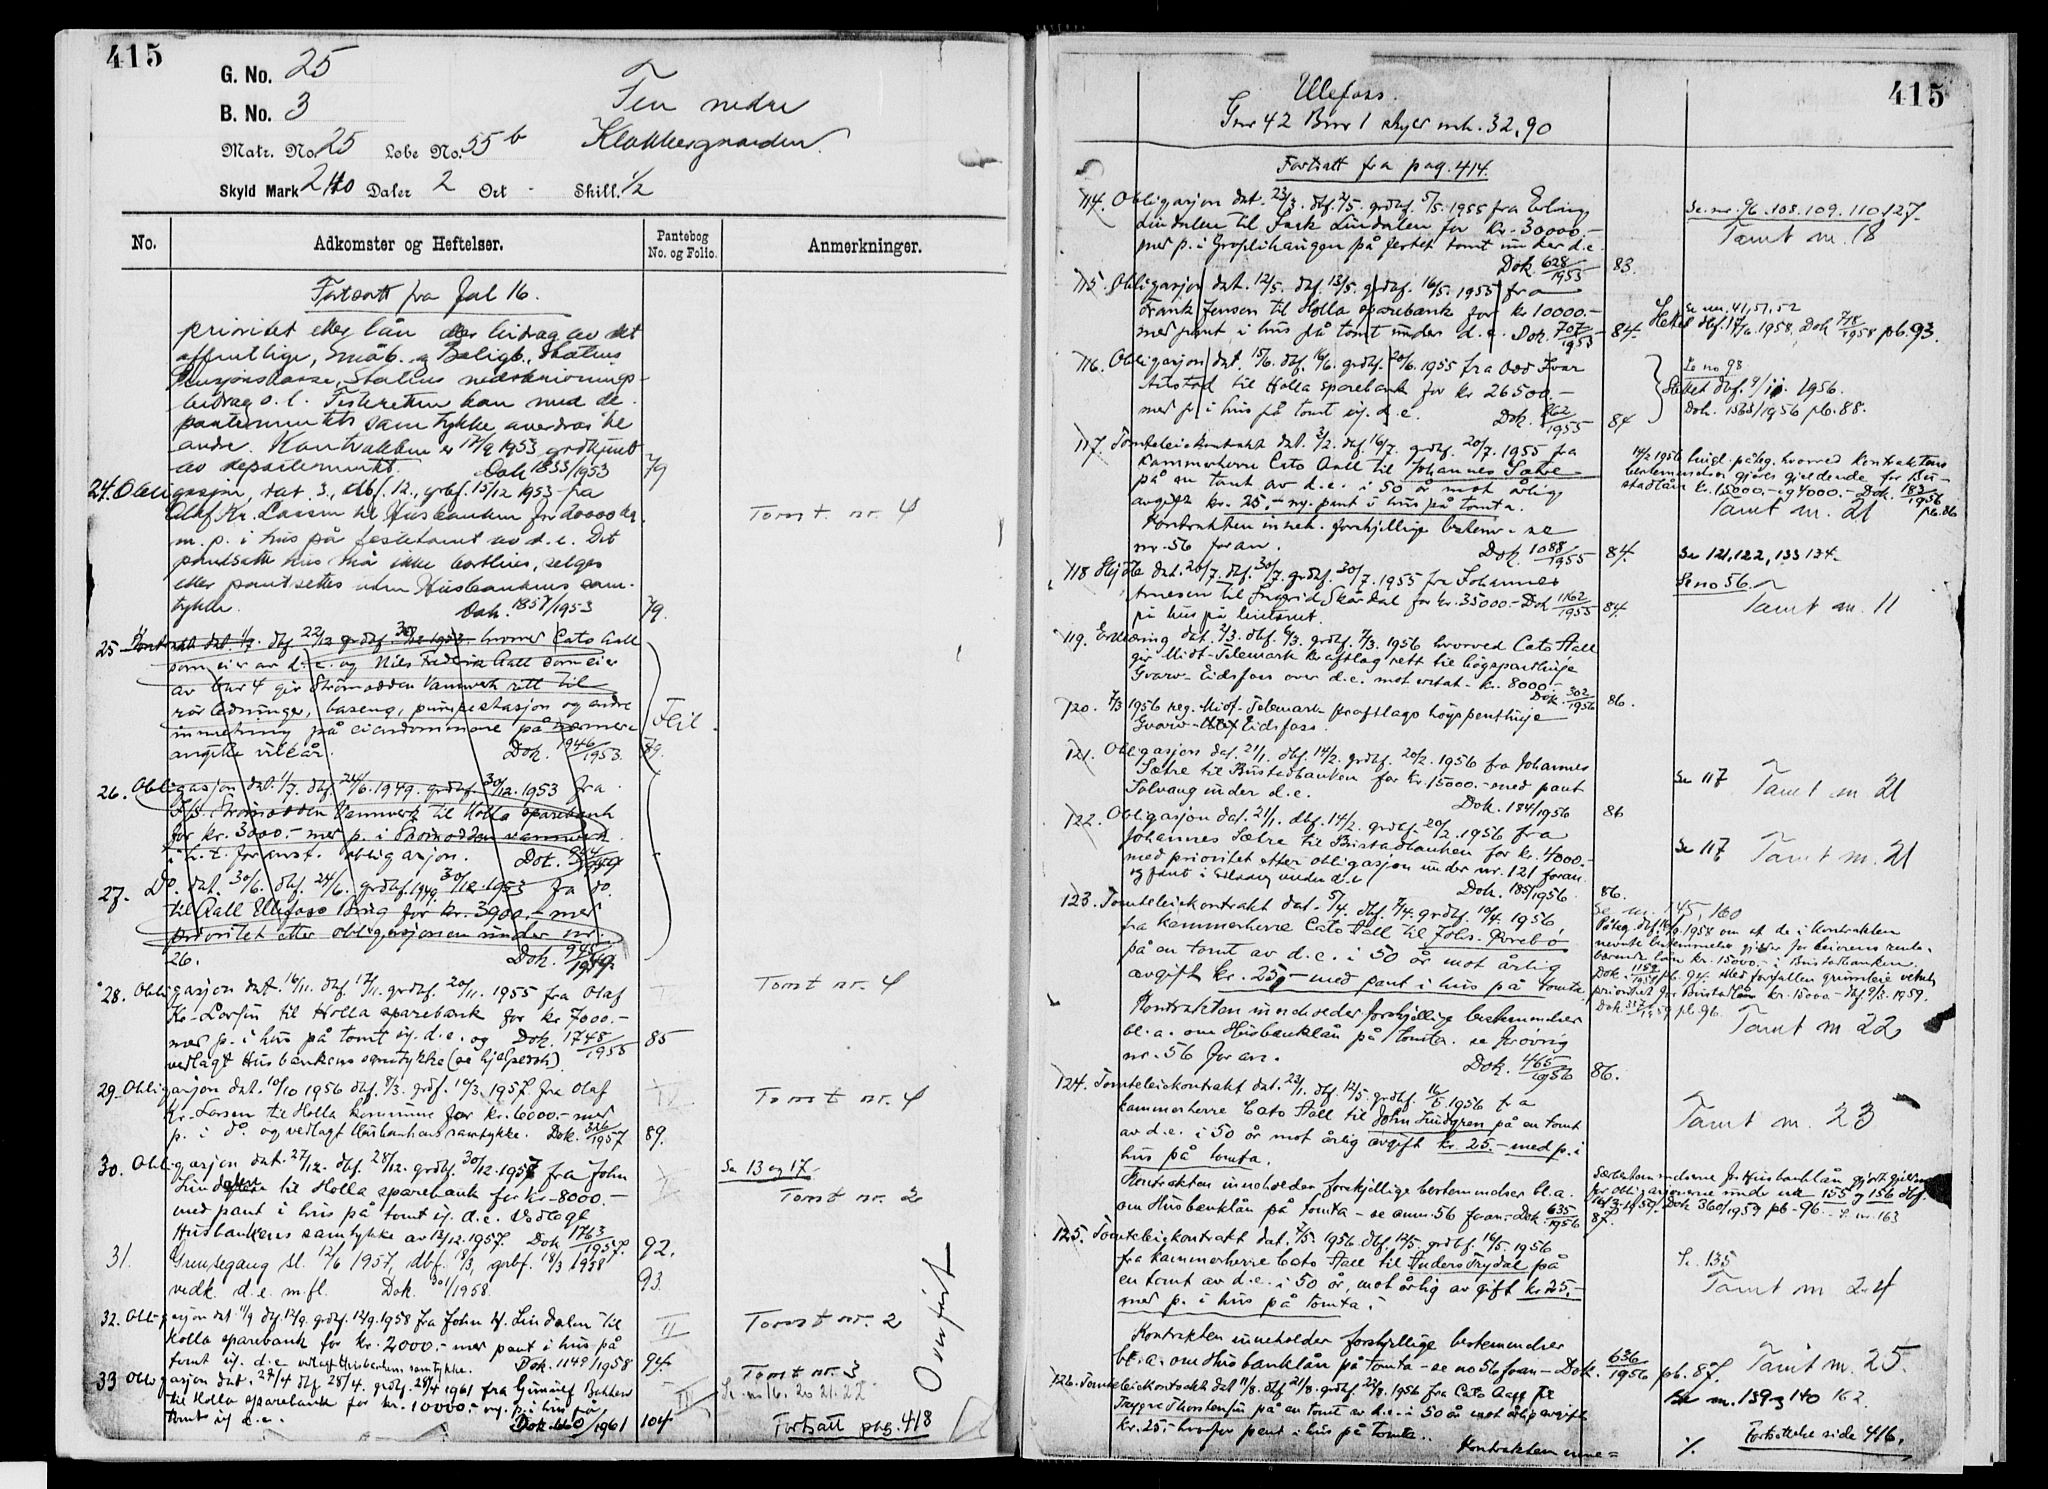 415
G. No. 25
B. No. 3
Fen nedre
Klokkergaarden.
Matr. No. 25 Løbe No. 55 b
Skyld Mark 2,40 Daler 2 Ort - Skill. 1/2
No.
Adkomster og Heftelser.
Pantebog No. og Folio.
Anmerkninger.
Fortsatt fra fol 16.
prioritet etter lån eller bidrag av det
offentlige, Småb. og Boligb., Statens
Pensjonskasse, Statens nedskrivnings-
bidrag o.l. Festeretten kan med de-
partementets samtykke averdras til
andre. Kontrakten er 17/9 1953 godkjent
av departementet. Dok 1833/1953 79
24. Obligasjon, dat. 3., dbf. 12., grbf. 15/12 1953 fra
Olaf Kr. Larsen til Husbanken for 20000 kr.
m. p. i hus på festetomt av d.e. Det
Tomt. nr. 4
pantsatte hus må ikke bortleies, selges
eller pantsettes uten Husbankens sam-
tykke. Dok. 1857/1953 79.
25 Kontrakt dat. 1/7. dbf. 22/12 grdbf 30/12 1953 hvorved Cato Aall
som eier av d.e. og Nils Frederik Aall som eier
av bnr 4 gir Strømodden Vannverk rett til
rørledninger, basseng, pumpestasjon og andre
innretning på eiendommene på nærmere
Feil.
angitte vilkår. Dok. 1946/1953. 79.
26. Obligasjon dat. 1/7. dbf. 24/6. 1949. grdbf. 30/12. 1953 fra
Strømodden Vannverk til Holla sparebank
for kr. 3000.- med p. i Strømodden vannverk
i h. t. foranst. obligasjon. Dok. 944/1949
27. Do. dat. 30/6. dbf. 24/6. grdbf. 1949. 30/12 1953 fra do.
til Aall Ulefoss Brug for kr. 3900.- med
prioritet etter obligasjonen under nr.
26. Dok. 945/1949.
28. Obligasjon dat. 16/11. dbf. 17/11. grdbf. 20/11. 1955 fra Olaf
Kr. Larsen til Holla sparebank for kr 7000.-
Tomt nr. 4
med p. i hus på tomt u. d. e. og Dok. 1748/1955 85
vedlagt Husbankens samtykke (se hjelpedok).
29. Obligasjon dat. 10/10 1956 dbf. 8/3. grdf. 10/3. 1957 fra Olaf
Kr. Larsen til Holla kommune for kr. 6000.- med
Tomt nr. 4
p. i do. og vedlagt Husbankens samtykke. Dok. 326/1957 89.
30. Obligasjon dat. 27/12. dbf. 28/12. grdbf. 30/12. 1957 fra John
Lindalen til Holla sparebank for kr. 8000.-
Se 13 og 17
Tomt nr. 2
med pant i hus på tomt u. d.e. Vedlagt
Husbankens samtykke av 12/12. 1957. Dok. 1763/1957. 92.
31. Grensegang sl. 12/6 1957, dbf. 18/3, grbf. 18/3 1958
vedk d.e. m.fl. Dok. 301/1958. 93.
32. Obligasjon dat 11/9 dbf. 12/9. grdbf. 12/9. 1958 fra John H. Lindalen til
Holla sparebank for kr. 2000.- med pant i hus på
II Tomt nr. 2
tomt u. d.e vedlagt Husbankens samtykke. Dok. 1149/1958 94.
33 Obligasjon dat. 27/4 dbf. 28/4. grdbf. 28/4 1961 fra Gunnulf Bakken
til Holla sparebank for kr. 10000.- og p. i hus på
tomt u. d.e. /1961 104
III Tomt nr. 3
Se no 16. 20 21. 22.
Fortsatt pag. 418
Overført
415
Ulefoss.
Gnr 42 Bnr 1 skyld mk. 32,90
Fortsatt fra pag. 414.
114. Obligasjon dat. 23/3. dbf. 2/5. grdbf. 5/5. 1955 fra Erling
Lindalen til Isak Lindalen for kr. 30000.-
med p. i Groplihaugen på festet tomt under d.e.
Dok. 628/1953 83.
Se nr. 96. 108. 109. 110 127.
Tomt nr. 18
115. Obligasjon dat. 12/5. dbf. 13/5. grdbf. 16/5. 1955 fra
Frank Jensen til Holla sparebank for kr 10000.-
med pant i hus på tomt under d.e. Dok. 707/1955 84.
Se nr. 41, 51, 52
Slettet dbf. 17/6. 1958, Dok 718/1958 pb. 93.
116. Obligasjon dat. 15/6. dbf. 16/6. grdbf. 20/6. 1955 fra Odd Ivar
Anstad til Holla sparebank for kr 26500.-
med p. i hus på tomt u. d.e. Dok. 862/1955 84
Se no 98
Slettet dbf. 9/11. 1956.
Dok. 1563/1956 pb. 88.
117. Tomteleiekontrakt dat. 3/2. dbf. 16/7. grdbf. 20/7. 1955 fra
Kammerherre Cato Aall til Johannes Sætre
på en tomt av d.e. i 50 år mot årlig
avgift kr. 25.- og pant i hus på tomta.
Kontrakten inneh. forskjellige bestem. se
nr. 56 foran. Dok. 1088/1955 84.
14/2 1956 tingl. påteg. hvorved kontraktens
bestemmelser gjøres gjeldende for Bu-
stadlån kr. 15000.- og 4000.- Dok. 183/1956 pb. 86
Tomt nr. 21
Se 121, 122, 133 134.
118 Skjøte dat. 20/7. dbf. 30/7. grdbf. 30/7. 1955 fra Johannes
Arnesen til Ingrid Skårdal for kr. 35000.- Dok 1162/1955 84.
på hus på leietomt.
Se no 56.
Tomt nr. 11
119. Erklæring dat. 2/3. dbf. 6/3. grdbf. 7/3. 1956 hvorved Cato Aall
gir Midt-Telemark Kraftlag rett til høgspentlinje
Gvarv-Eidsfoss over d.e. mot erstat- kr. 8000.-
Dok. 302/1956 86.
120. 7/3 1956 reg. Midt-Telemark Kraftlags høgspentlinje
Gvarv-Eidsfoss.
121. Obligasjon dat. 21/1. dbf. 14/2. grdbf. 20/2. 1956 fra Johannes
Sætre til Bustadbanken for kr. 15000.- med pant
Solvang under d.e. Dok. 184/1956 86
Se 117 Tomt nr 21
122. Obligasjon dat. 21/1. dbf. 14/2. grdbf. 20/2. 1956 fra
Johannes Sætre til Bustadbanken for kr. 4000.-
med prioritet etter obligasjon under nr. 121 foran.
og pant i Solvang under d.e. Dok. 185/1956. 86.
Se 117 Tomt nr. 21
123. Tomteleiekontrakt dat. 5/4. dbf. 7/4. grdbf. 10/4. 1956
fra kammerherre Cato Aall til Johs. Prebø
på en tomt av d.e. i 50 år mot årlig
avgift kr. 25,- med pant i hus på tomta.
Kontrakten inneholder forskjellige bestemmelser
bl. a. om Husbanklån på tomta. se forøvrig
nr. 56 foran. Dok. 465/1956 86.
Se nr. 45, 160
Påteg. dbf. 1958 om at de i kontrakten
nevnte bestemmelser gjelder for leierens rente-
bærende lån kr. 15000.- i Bustadbanken.
Dok. 1152/1958 pb. 94. Med forfallen grunnleie vekeh
prioritet for Bustadlån kr. 15000.- dbf. 9/3. 1959.
Dok. 337/1959 pb. 96.
Tomt nr 22
124. Tomteleiekontrakt dat. 23/1. dbf. 12/5. grdbf. 16/5 1956 fra
kammerherre Cato Aall til John Lindgren på en tomt
av d.e. i 50 år mot årlig avgift kr. 25.- med p. i
hus på tomta.
Tomt nr. 23
Kontrakten inneholder forskjellige bestemmelser bl.a.
om Husbanklån på tomta - se anm. 56 foran. Dok. 635/1956 87.
Særbestemmelserne for Husbanklån gjort gjeld.
for obligasjonerne under nr 155 og 156 dbf.
16/3-1959. Dok 360/1959 pb. 96. Se nr. 163
125. Tomteleiekontrakt dat. 7/5. 1956 dbf. 12/5. grdbf. 16/5. 1956
fra kammerherre Cato Aall til Anders Frydal på
en tomt av d.e. i 50 år, mot årlig avgift kr. 25,-
med p. i hus på tomta.
Se. 135
Tomt nr 24
Kontrakten inneholder forskjellige bestemmelser
bl. a. om Husbanklån på tomta - se no 56 foran - Dok. 636/1956 pb. 87.
Tomt nr. 25
126. Tomteleiekontrakt dat 11/8. dbf. 21/8. grdbf. 22/8. 1956 fra Cato Aall til
Trygve Thorstensen på en tomt av d.e. i 50 år mot årlig avgift
kr. 25,- hvorfor pant i hus på tomta.
Kontrakten inne=
Se nr. 139 og 140 162.
%. Fortsettelse side 416.